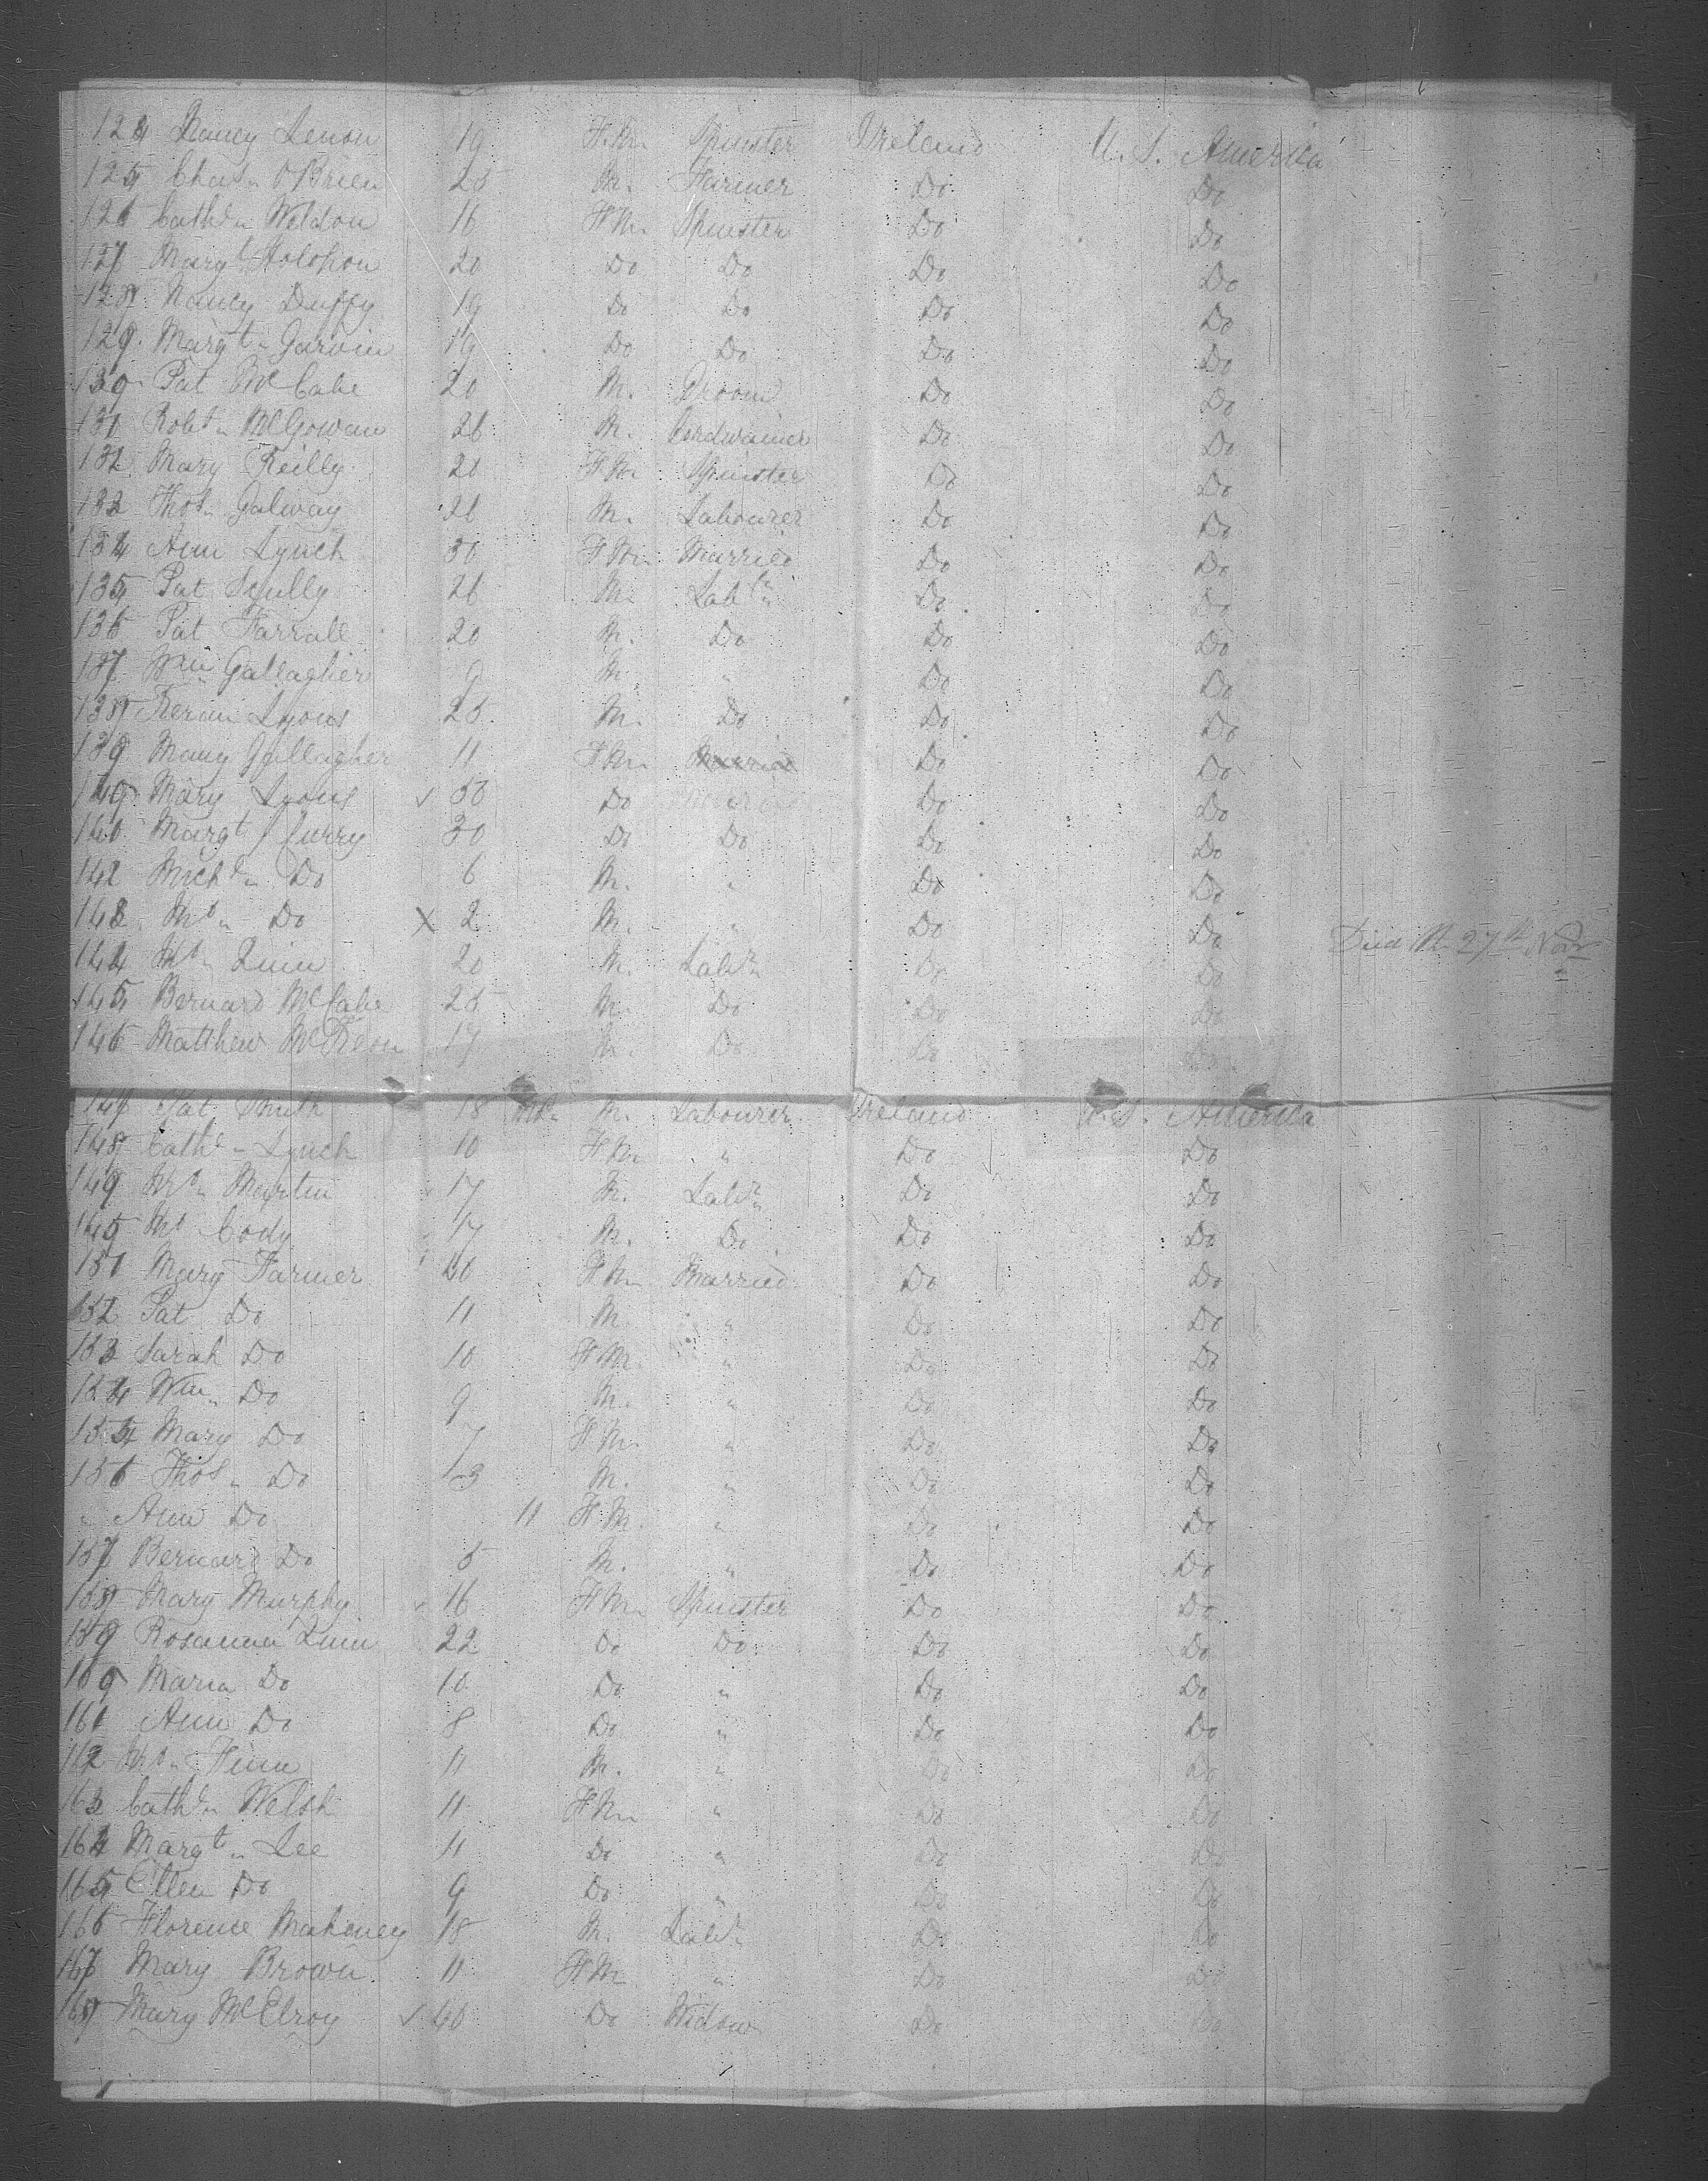 124 Nancy Lenon 19 F.M. Spinster Ireland U.S. America
125 Chas. O'Brien 25 M. Farmer Do Do
126 Cathe. Weldon 16 F.M. Spinster Do Do
127 Margt. 20 Do Do Do Do
128 Nancy Duffy 19 Do Do Do Do
129 Margt. Garvin 19 Do Do Do Do
130 Pat McCabe 20 M. Groom Do Do
131 Robt. McGowan 26 M. Cordwainer Do Do
132 Mary Reilly 20 F.M. Spinster Do Do
133 Thos. Galway 26 M. Labourer Do Do
134 Ann Lynch 30 F.M. Married Do Do
135 Pat Scully 26 M. Labr. Do Do
136 Pat Farrall 20 M. Do Do Do
137 Wm. Gallagher 9 M. " Do Do
138 Keran Lyons 25 M. Do Do Do
139 Mary Gallagher 11 F.M. Do Do
140 Mary Lyons 50 Do Married Do Do
141 Margt. Curry 30 Do Do Do Do
142 Michl. Do 6 M. " Do Do
143 Do X 2 M. " Do Do Died 27th Novr
144 Quin 20 M. Labr. Do Do
145 Bernard McCabe 25 M. Do Do Do
146 Matthew McKeon 17 M. Do Do Do
147 Pat Smith 18 M. Labourer Ireland U.S. America
148 Cathe. Lynch 10 F.M. " Do Do
149 Martin 17 M. Labr. Do Do
Cody 17 M. Do Do Do
151 Mary Farmer 40 F.M. Married Do Do
152 Pat Do 11 M. " Do Do
153 Sarah Do 10 F.M. " Do Do
154 Wm. Do 9 M. " Do Do
155 Mary Do 7 F.M. " Do Do
156 Thos. Do 3 M. " Do Do
" Ann Do 11 F.M. " Do Do
157 Bernard Do 5 M. " Do Do
158 Mary Murphy 16 F.M. Spinster Do Do
159 Rosanna Quin 22 Do Do Do Do
160 Maria Do 10 Do " Do Do
161 Ann Do 8 Do " Do Do
162 Finn 11 M. " Do Do
163 Cathe. Welsh 11 F.M. " Do Do
164 Margt. Lee 11 Do " Do Do
165 Ellen Do 9 Do " Do Do
166 Florence Mahoney 18 M. Labr. Do Do
167 Mary Brown 11 F.M. " Do Do
168 Mary McElroy 40 Do Widow Do Do